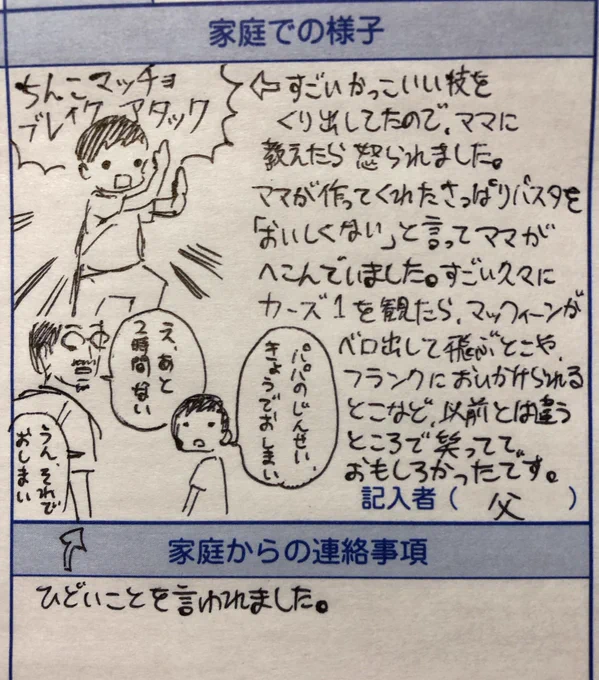 家庭での様子
ちんこマッチョ
ブレイク アタック
⇦すごいかっこいい技を
くり出してたので、ママに
教えたら怒られました。
ママが作ってくれたさっぱりパスタを
「おいしくない」と言ってママが
へこんでいました。すごい久々に
カーズ1を観たら、マックィーンが
ベロ出して飛ぶとこや、
フランクにおいかけられる
とこなど、以前とは違う
ところで笑ってて、
おもしろかったです。
パパのじんせい、
きょうでおしまい
え、あと
2時間ない
うん、それで
おしまい
記入者(父)
家庭からの連絡事項
ひどいことを言われました。